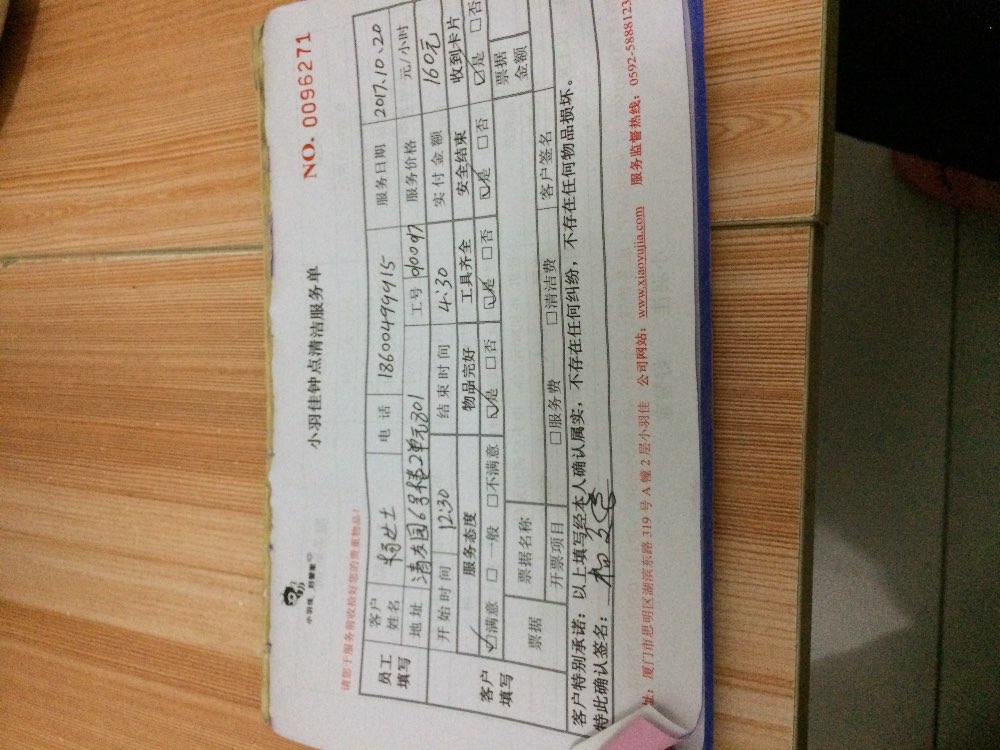 小羽佳 好管家
NO. 0096271
小羽佳钟点清洁服务单
请您于服务前收检好您的贵重物品!
员工填写 客户姓名 杨女士 电话 18600499915 服务日期 2017.10.20
地址 清友园6号楼2单元801 工号 服务价格 元/小时
开始时间 12:30 结束时间 4:30 实付金额 160元
客户填写 服务态度 物品完好 工具齐全 安全结束 收到卡片
☑满意 □一般 □不满意 ☑是 □否 ☑是 □否 ☑是 □否 ☑是 □否
票据 票据名称 票据金额
开票项目 □服务费 □清洁费 客户签名
客户特别承诺:以上填写经本人确认属实,不存在任何纠纷,不存在任何物品损坏。
特此确认签名:
址:厦门市思明区湖滨东路 319 号 A 幢 2 层小羽佳 公司网站:www.xiaoyujia.com 服务监督热线:0592-5888123